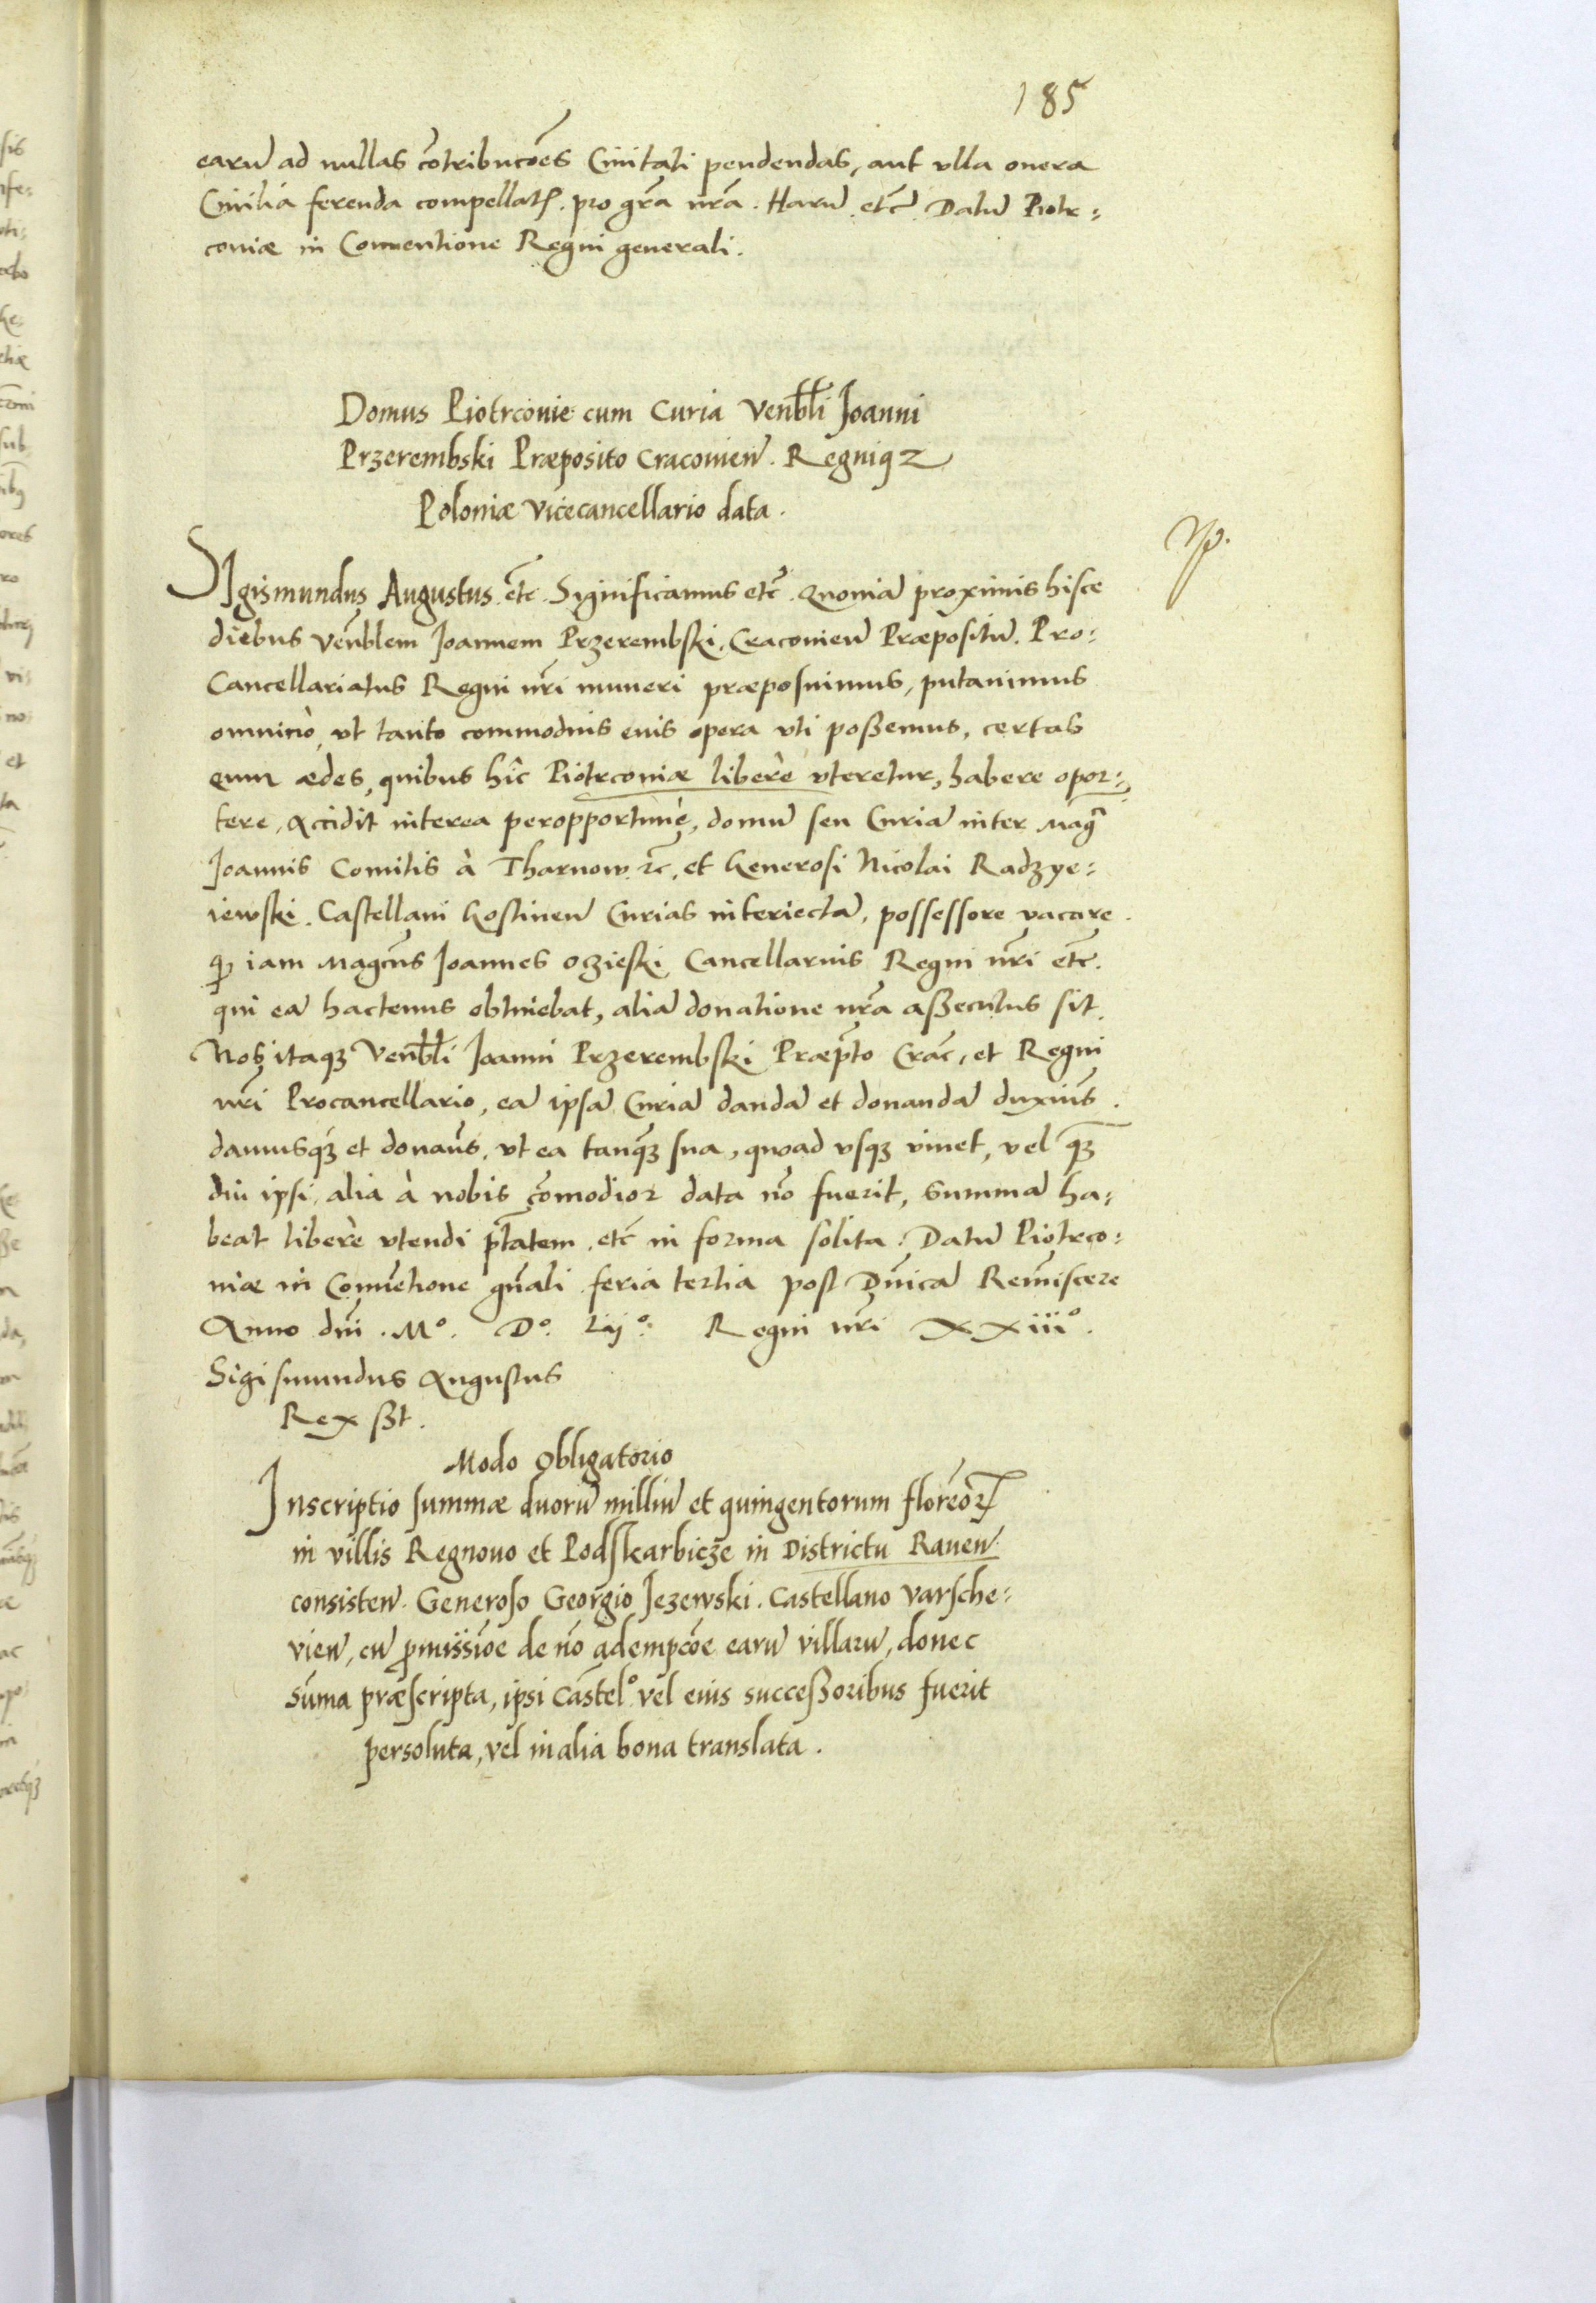 185
earū ad nullas cōtribucōēs Ciuitati pendendas, aut vlla onera
Ciuilia ferenda compellatr. pro gra̅ nra̅. Harū etc̅. Datū Piotr:
coniæ in Conuentione Regni generali.
Domus Piotrconie cum Curia Venbl̅i Joanni
Przerembski Præposito Cracouien̅. Regniqz
Poloniæ Vicecancellario data.
SIgismundus Augustus etc̅. Significamus etc̅. Quoniā proximis hisce
diebus Ven̅blem Joannem Przerembski, Cracouien̅ Præpositū. Pro:
Cancellariatus Regni nr̅i muneri præposuimus, putauimus
omninò, vt tanto commodius eius opera vti poßemus, certas
eum ædes, quibus hîc Piotrconiæ liberè vteretur, habere opor:
tere, Accidit interea peropportunè, domū seu Curiā inter Mag̅
Joannis Comitis à Tharnow. etc̅. et Generosi Nicolai Radzye:
iewski. Castellani Gostinen̅ Curias interiectā, possessore vacare.
qd iam Magcūs Joannes Oczieski Cancellarius Regni nr̅i etc̅.
qui eā hactenus obtinebat, aliā donatione nra̅ aßecutus sit.
Nos itaqz Venbl̅i Joanni Przerembski Præp̅to Crac̅, et Regni
nr̅i Procancellario, eā ipsā Curiā dandā et donandā duxim̅s.
damusqz et donam̅s, vt ea tanqz sua, quoad vsqz viuet, vel qz̅
diu ipsi, alia à nobis cōmodior data nō fuerit, summā ha:
beat liberè vtendi p̅tatem. etc̅ in forma solita. Datū Piotrco:
niæ in Conuētione gn̅ali feria tertia post Dn̅icā Remīscere
Anno dn̅i. Mº. Dº. Lijº. Regni nr̅i XXiiiº.
Sigismundus Augustus
Rex sst.
Modo Obligatorio
Inscriptio summæ duorū milliū et quingentorum floreōr
in villis Regnouo et Podskarbicze in Districtu Rauen̅
consisten̅. Generoso Georgio Jezewski. Castellano Varsche:
uien̅, cū p̅missiōe de nō adempcōe earū villarū, donec
Sūma præscripta, ipsi Castelº vel eius succeßoribus fuerit
persoluta, vel in alia bona translata.